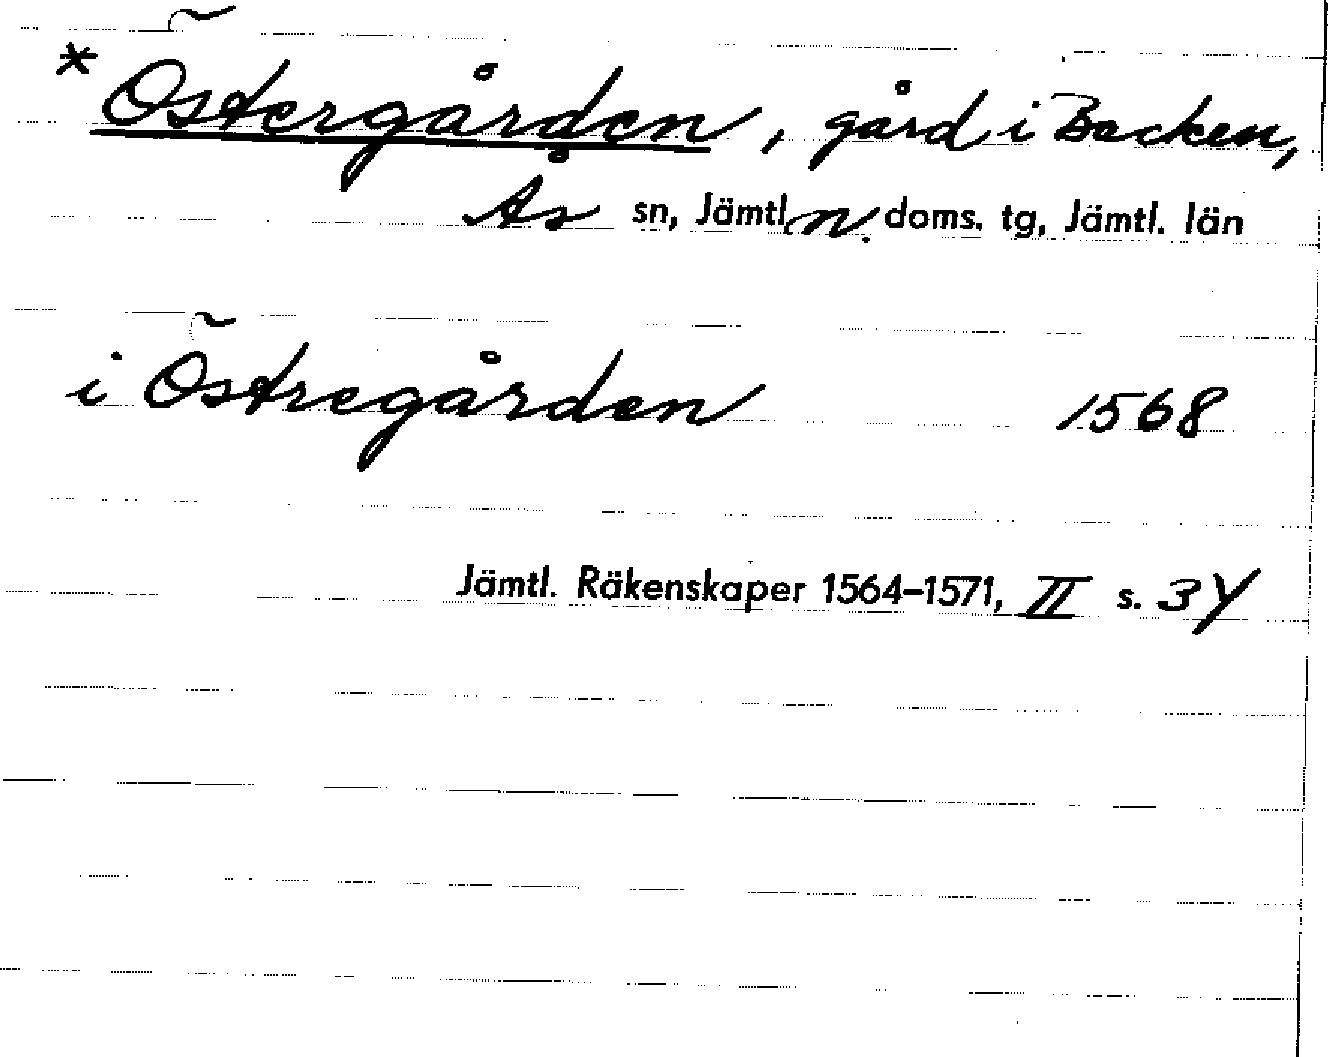 * Östergården, gård i Backen,
Ås sn, Jämtl. n. doms. tg, Jämtl. län
i Östregården 1568
Jämtl. Räkenskaper 1564–1571, II s. 34